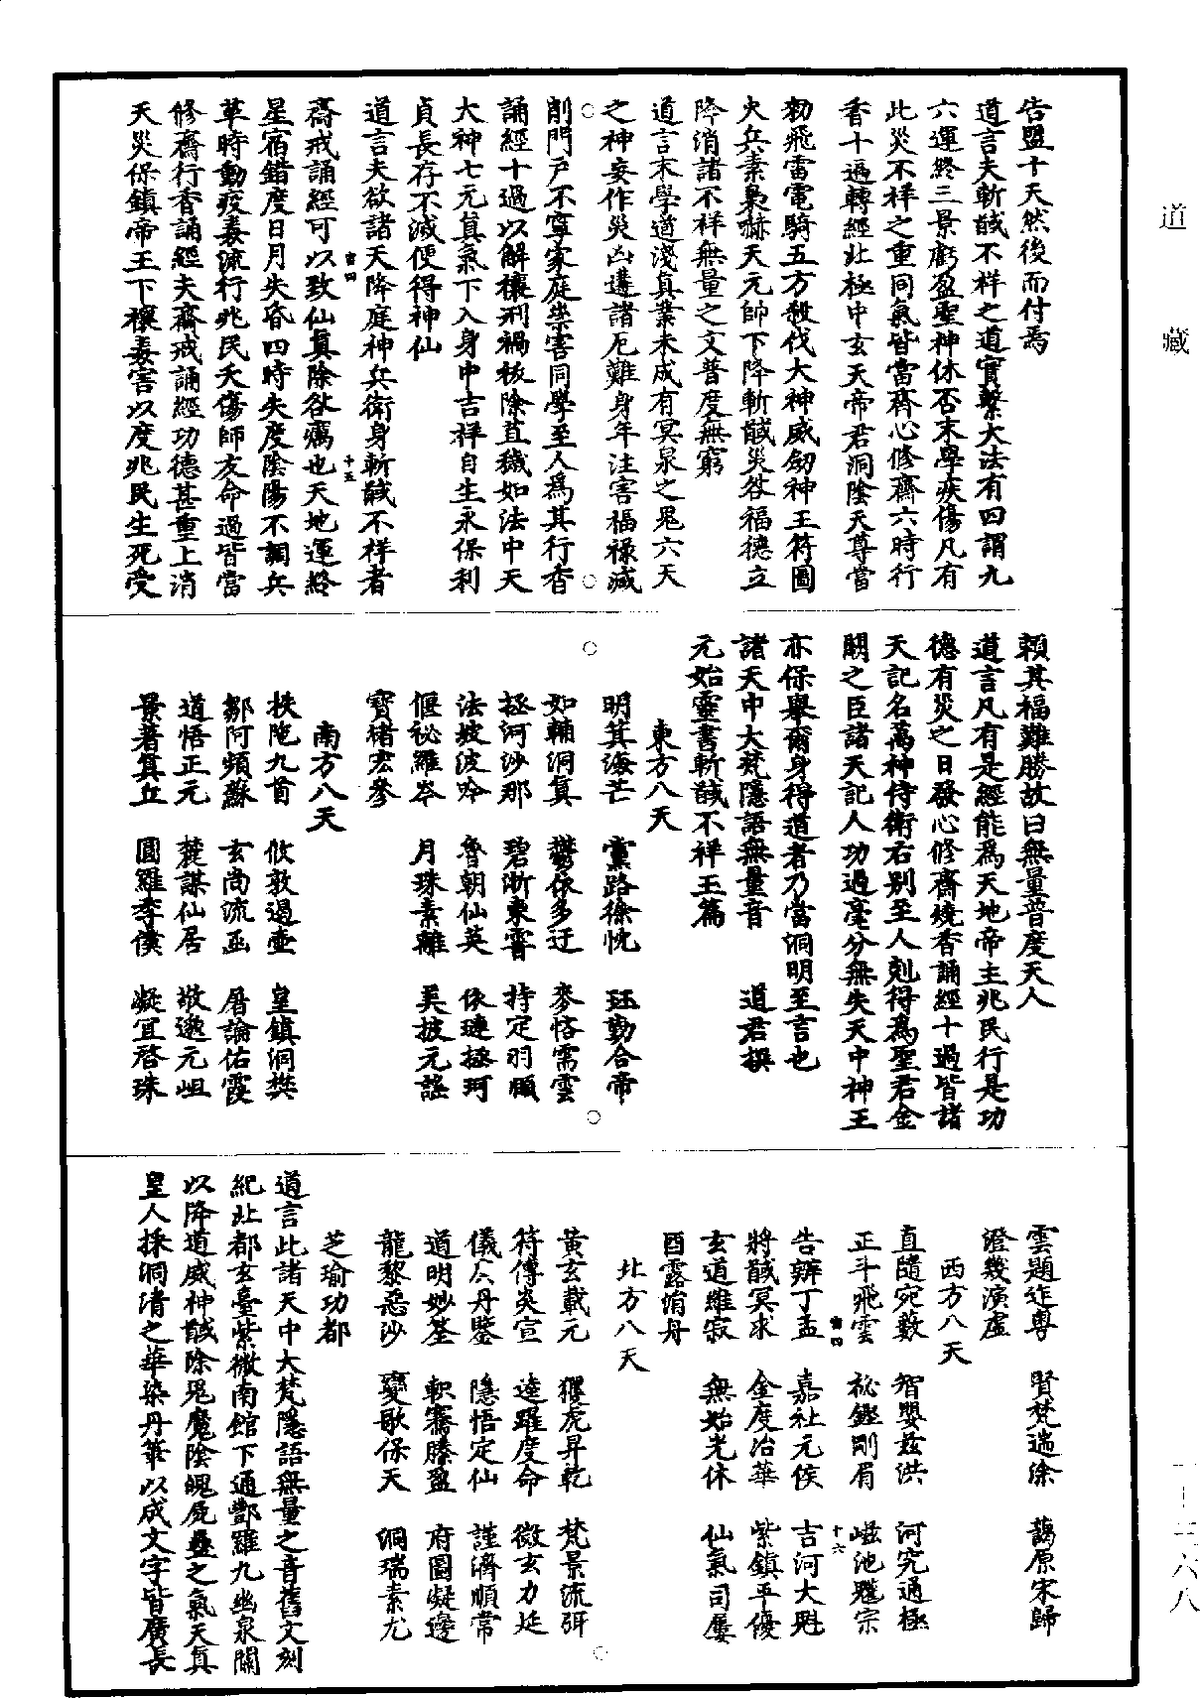 告盟十天然後而付焉
道言夫斬馘不祥之道實繫大法有四謂九
六運終三景虧盈聖神休否末學疾傷凡有
此災不祥之重同氣皆當齊心修齋六時行
香十遍轉經北極中玄天帝君洞陰天尊當
勑飛雷電騎五方殺伐大神威劒神王符圖
火兵素梟嚇天元帥下降斬馘災咎福德立
降消諸不祥無量之文普度無窮
道言末學道淺真業未成有冥泉之鬼六天
之神妄作災凶遘諸厄難身年注害福祿減
削門戶不寧家庭祟害同學至人為其行香
誦經十過以解禳刑禍祓除苴穢如法中天
大神七元真氣下入身中吉祥自生永保利
貞長存不滅便得神仙
道言夫欲諸天降庭神兵衛身斬馘不祥者
齋戒誦經可以致仙真除咎癘也天地運終
星宿錯度日月失昏四時失度陰陽不調兵
革時動疫毒流行兆民夭傷師友命過皆當
修齋行香誦經夫齋戒誦經功德甚重上消
天災保鎮帝王下禳毒害以度兆民生死受
賴其福難勝故曰無量普度天人
道言凡有是經能為天地帝主兆民行是功
德有災之日發心修齋燒香誦經十過皆諸
天記名萬神侍衛右別至人剋得為聖君金
闕之臣諸天記人功過毫分無失天中神王
亦保舉爾身得道者乃當洞明至言也
諸天中大梵隱語無量音 道君撰
元始靈書斬馘不祥玉篇
東方八天
明其海芒 黨路徐忱 班勤合帝
如輔洞真 鬱依多迂 麥恪霱雲
拯河沙那 碧浙東霄 持定羽順
法披波吟 魯朝仙英 依璉拯珂
偃祕羅岑 月珠素離 美披元謠
寶緒宏參
南方八天
袟陁九首 攸敦過壺 皇鎮洞樊
鄒阿頻蘇 玄尚流函 眉論佑霞
道悟正元 麓謀仙居 敬邀元岨
景著箕丘 圓羅李僕 凝冝啓珠
雲題迮專 賢梵遄涂 藹原宋歸
澄幾演虛
西方八天
直隨宛數 智嬰茲洪 河究通極
正斗飛雲 祕鏗剛眉 嵫池魋宗
告辨丁孟 嘉社元侯 吉河大魁
將馘冥求 金度治華 紫鎮平優
玄道維寂 無始光休 仙氣司屢
酉露㴋丹
北方八天
黃玄載元 玃虎昇乾 梵景流弭
符傳炎宣 逵躍度命 微玄力廷
儀仄丹鑒 隱悟定仙 謹濟順常
道明妙荃 軹騫賸盈 府圖凝邊
龍黎惡沙 變歌保天 洞瑞素尤
芝瑜功都
道言此諸天中大梵隱語無量之音舊文刻
紀北都玄臺紫微南館下通酆羅九幽泉關
以降道威神馘除鬼魔陰魄屍蠱之氣天真
皇人採洞清之華染丹筆以成文字皆廣長
道藏
一-三六八